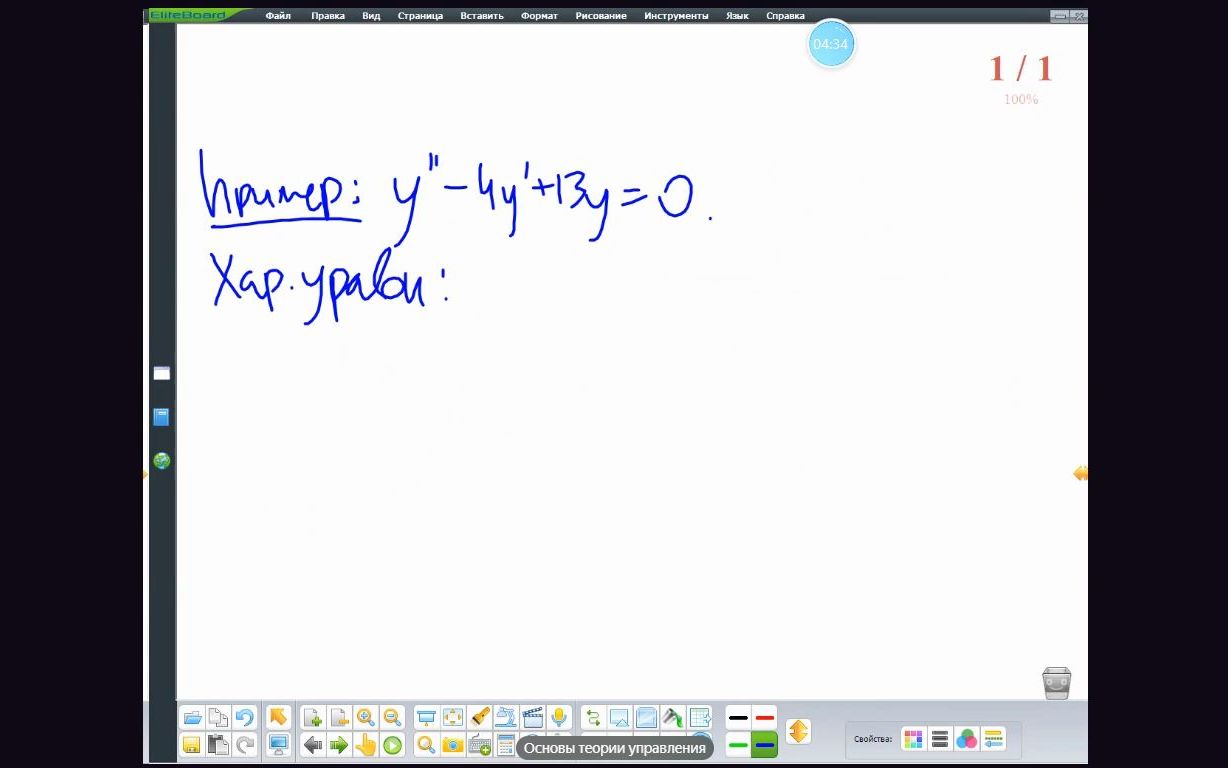 EliteBoard
Файл Правка Вид Страница Вставить Формат Рисование Инструменты Язык Справка
04:34
1 / 1
100%
Пример: y'' - 4y' + 13y = 0.
Хар. уравн:
Основы теории управления
Свойства: